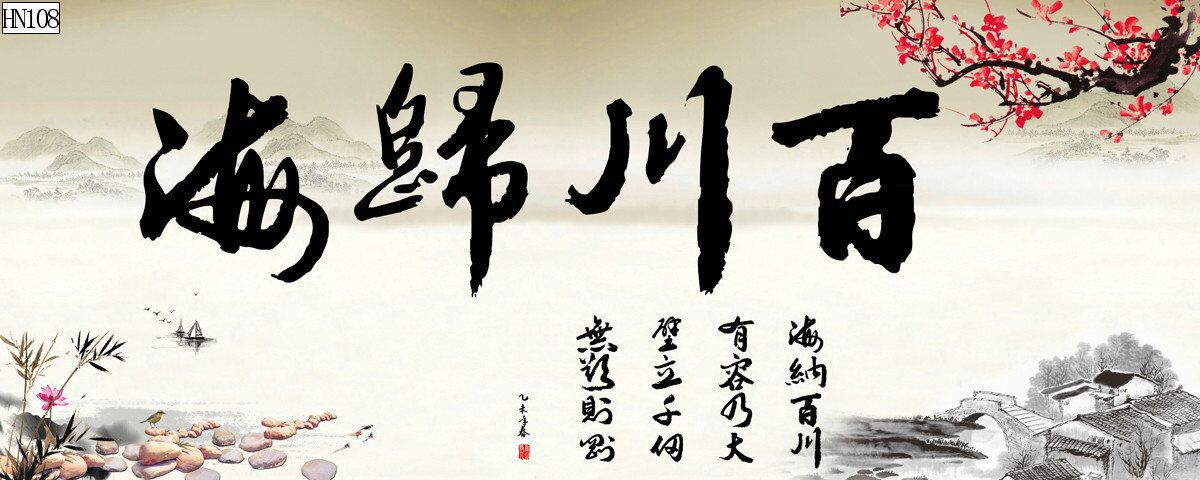 HN108
百川歸海
海納百川
有容乃大
壁立千仞
無欲則剛
乙未年春